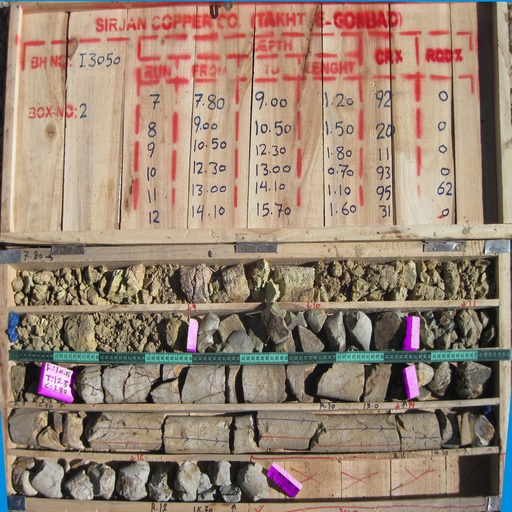 SIRJAN COPPER CO. (TAKHT-E-GONBAD)
DEPTH
BH NO: I3050
RUN FROM TO LENGHT CR% RQD%
7 7.80 9.00 1.20 92 0
BOX NO: 2
8 9.00 10.50 1.50 20 0
9 10.50 12.30 1.80 11 0
10 12.30 13.00 0.70 93 0
11 13.00 14.10 1.10 95 62
12 14.10 15.70 1.60 31 0
7.80